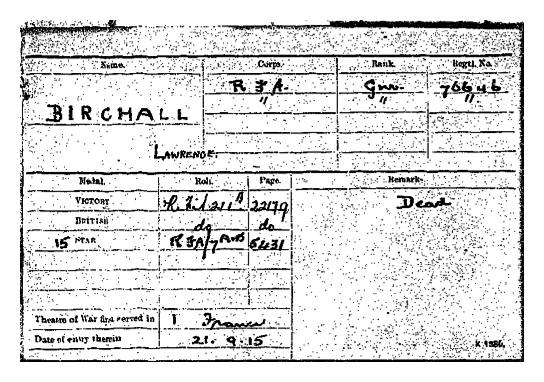 Name. Corps. Rank. Regtl. No.
R F A. Gnr. 76646
" " "
BIRCHALL
LAWRENCE.
Medal. Roll. Page. Remarks
VICTORY 211 B 22179 Dead
BRITISH do do
15 STAR RFA/7 5431
Theatre of War first served in 1 France
Date of entry therein 21. 9. 15
K 1380.